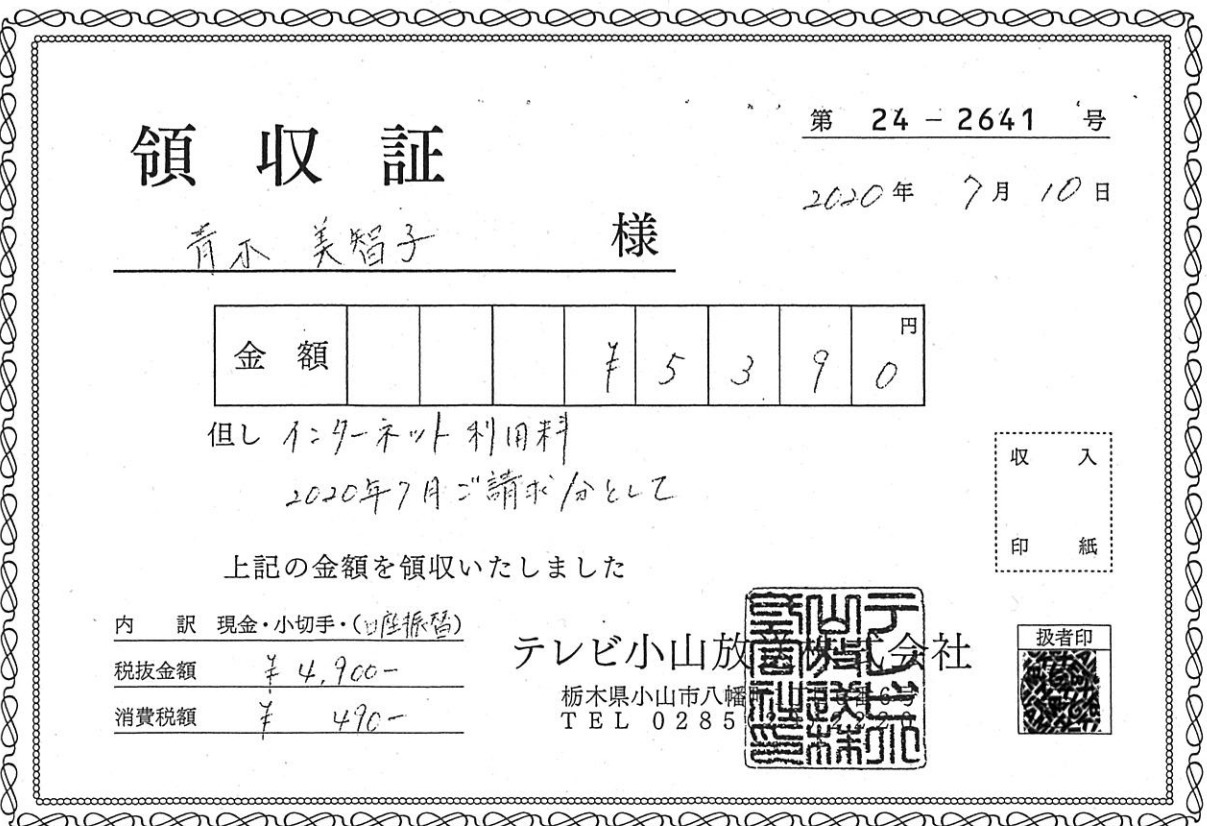 領収証
第 24-2641 号
2020年 7月 10日
青木 美智子 様
金額 ¥5390円
但し インターネット利用料
2020年7月ご請求分として
収入
印紙
上記の金額を領収いたしました
内訳 現金・小切手・(口座振替)
税抜金額 ¥4,900-
消費税額 ¥490-
テレビ小山放送株式会社
栃木県小山市八幡
TEL 0285
扱者印